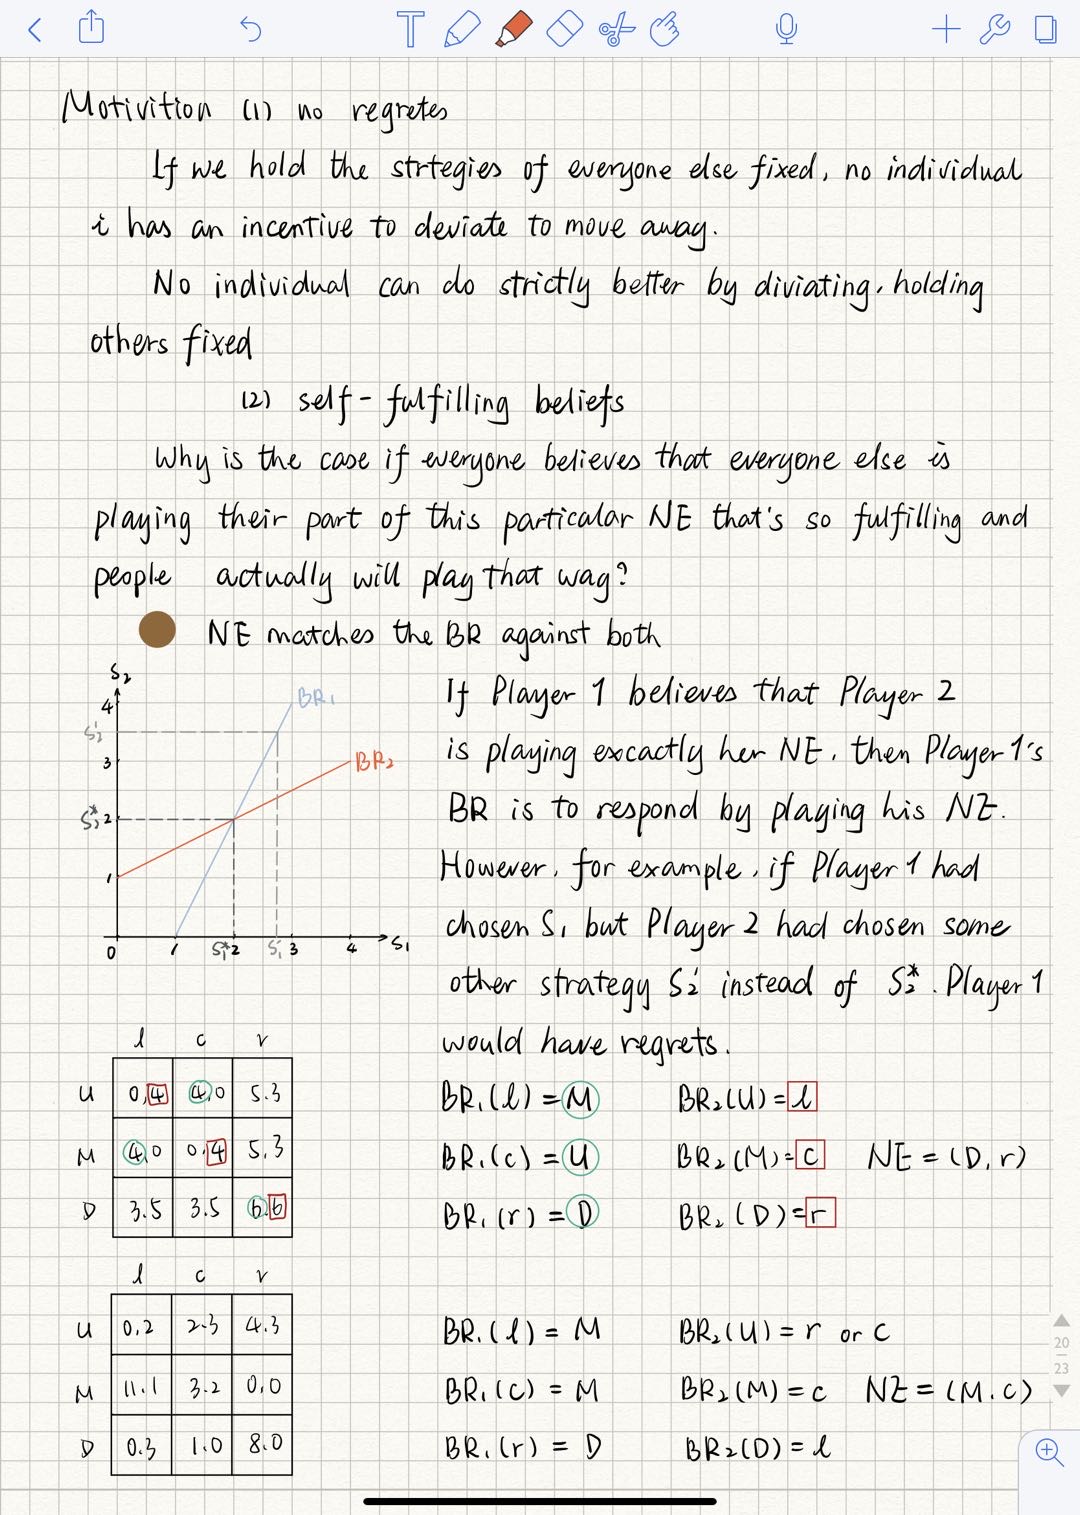 Motivition (1) no regretes
If we hold the strtegies of everyone else fixed, no individual
i has an incentive to deviate to move away.
No individual can do strictly better by diviating, holding
others fixed
(2) self-fulfilling beliefs
Why is the case if everyone believes that everyone else is
playing their part of this particular NE that's so fulfilling and
people actually will play that way?
NE matches the BR against both
S₂
4
S₂'
3
S₂* 2
1
0 1 S₁* 2 S₁' 3 4 S₁
BR₁
BR₂
If Player 1 believes that Player 2
is playing excactly her NE, then Player 1's
BR is to respond by playing his NE.
However, for example, if Player 1 had
chosen S₁ but Player 2 had chosen some
other strategy S₂' instead of S₂*. Player 1
would have regrets.
l c r
U 0,4 4,0 5.3
M 4,0 0,4 5,3
D 3.5 3.5 6.6
BR₁(l) = M BR₂(U) = l
BR₁(c) = U BR₂(M) = c NE = (D, r)
BR₁(r) = D BR₂(D) = r
l c r
U 0,2 2.3 4.3
M 11.1 3.2 0,0
D 0.3 1.0 8.0
BR₁(l) = M BR₂(U) = r or c
BR₁(c) = M BR₂(M) = c NE = (M.c)
BR₁(r) = D BR₂(D) = l
20
23